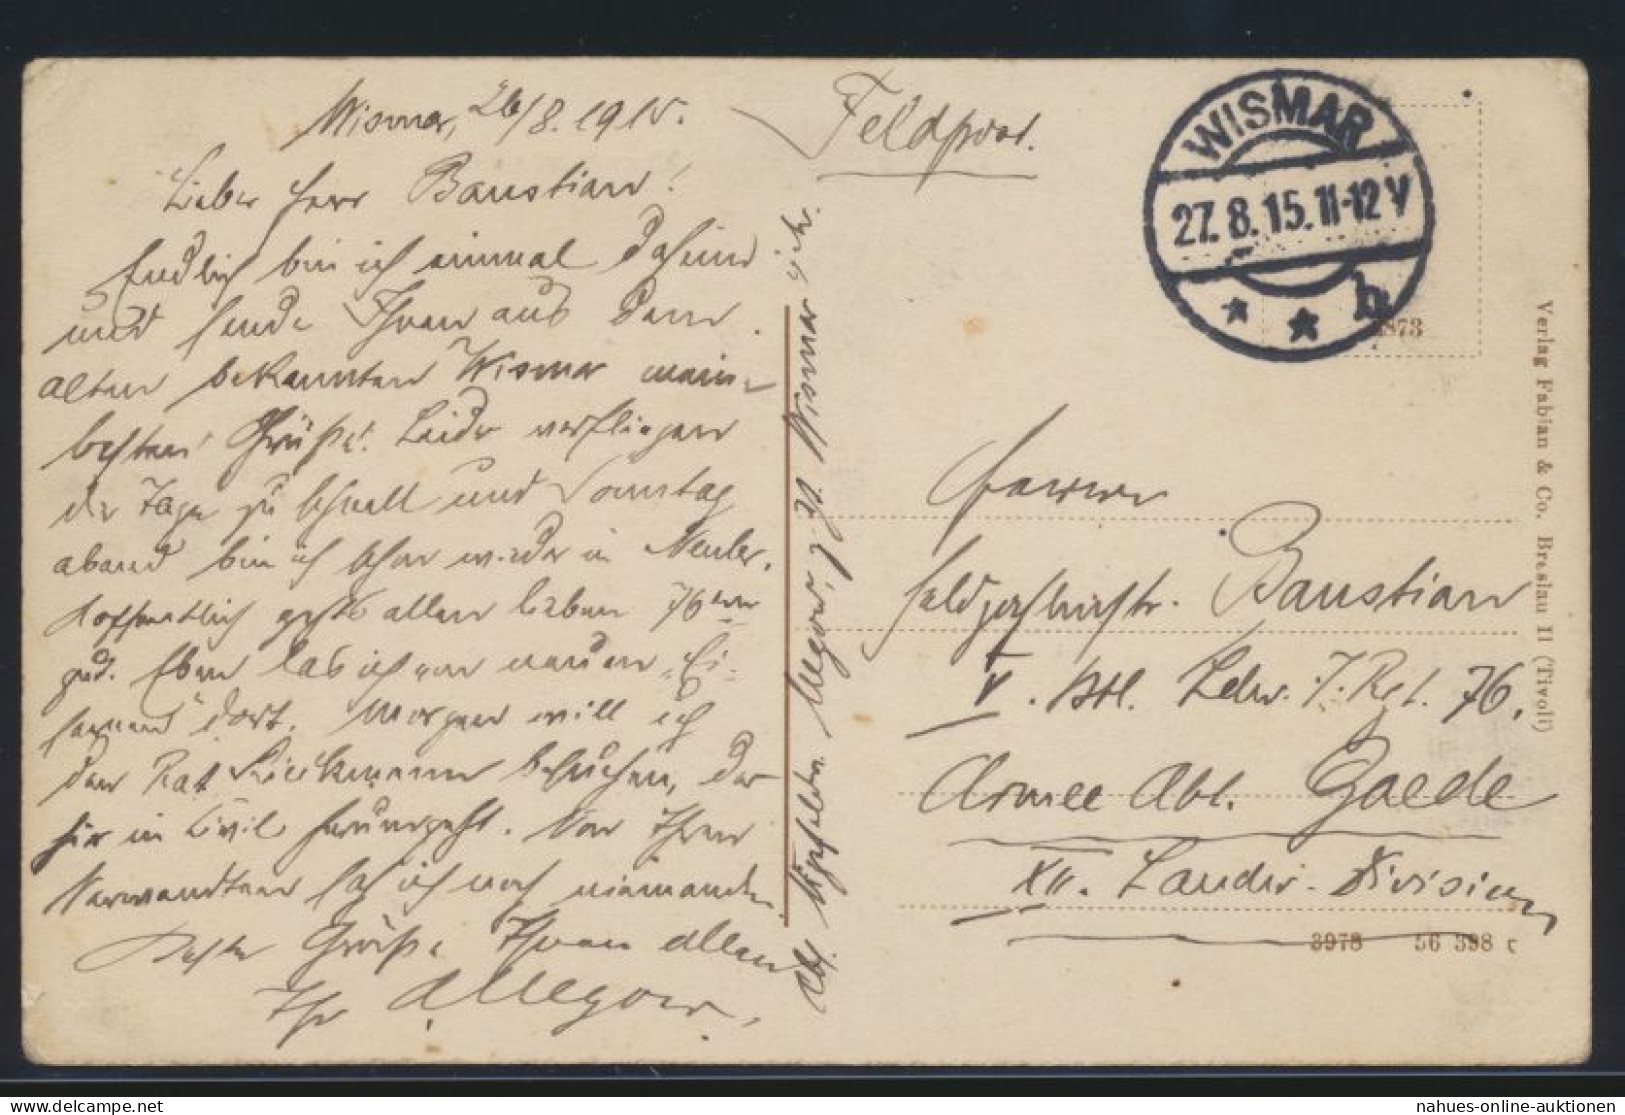 Wismar, 26/8. 1915.
Lieber Herr Baustian!
Endlich bin ich einmal daheim
und sende Ihnen aus dem
alten bekannten Wismar meine
besten Grüße! Leider verfliegen
die Tage zu schnell und Sonntag
abend bin ich schon wieder in
Hoffentlich geht's allen lieben 76ern
gut. Eben las ich von neuen „Ei-
sernen“ dort. Morgen will ich
den Rat besuchen, der
hier in Civil herumgeht. Von Ihren
Verwandten sah ich noch niemanden.
Beste Grüße Ihnen allen
Ihr Allegow.
Abs. Allegow, z. Zt. Wismar
Feldpost.
WISMAR
27.8.15.11-12V
* * b
873
Herrn
Feldgeschirrf. Baustian
V. Btl. Ldw. J. Rgt. 76.
Armee Abt. Gaede
XII. Landw. Division
3978 56 398 c
Verlag Fabian & Co. Breslau II (Tivoli)
nahues-online-auktionen